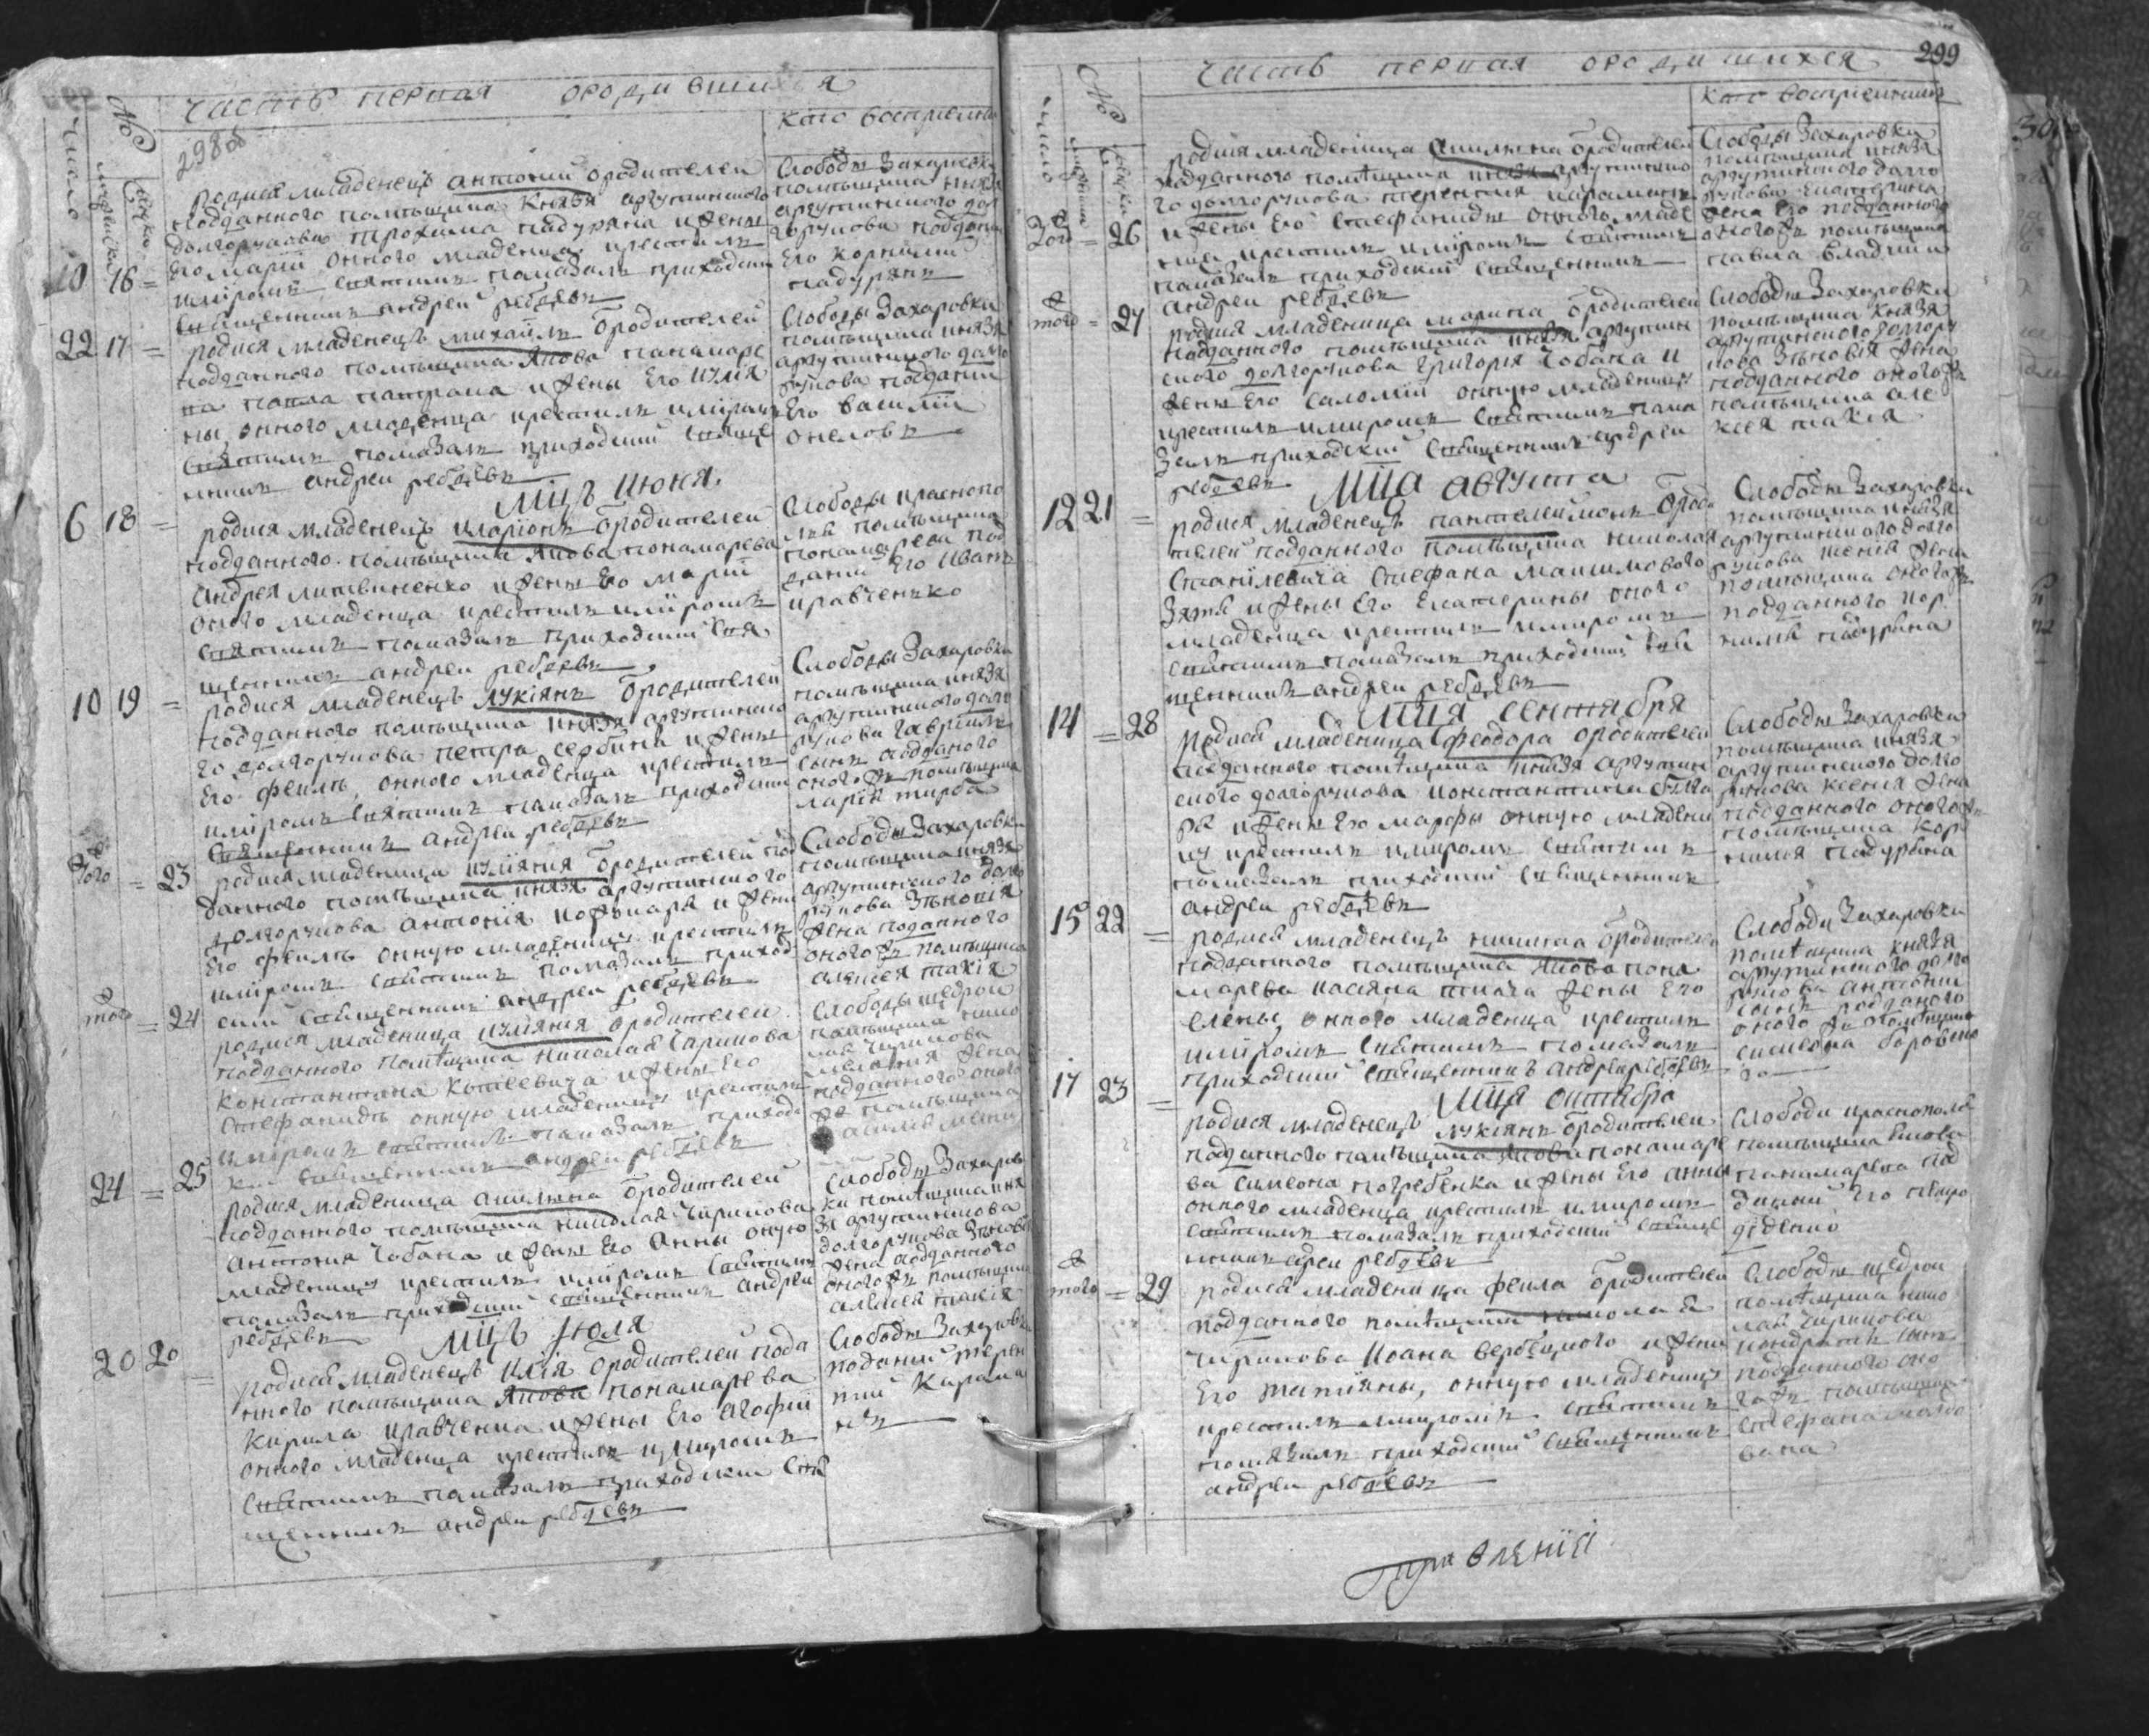 часть первая о родившихся
298об
Кто восприемни
№
число
мужеска
женска
10 16 =
родися младенецъ антоний ѿ родителей
подданного помѣщика князя аргутинского
долгорукова трохима падуряна и жены
его марїи онного младенца крестилъ
и мѵромъ святимъ помазалъ приходски
священникъ андреи
Слободы Захаровки
помѣщика князя
аргутинского дол
горукова поддани
его корнилий
падурянъ
22 17 =
родися младенецъ михаилъ ѿ родителей
подданного помѣщика якова панамаре
ва павла и жены его иулїа
ны, онного младенца крестилъ и мѵромъ
святимъ помазалъ приходский свяще
нникъ андреи
Слободы Захаровки
помѣщика князя
аргутинского долго
рукова поддани
его василий
мцъ июня
6 18 =
родися младенецъ иларїонъ ѿ родителей
подданного помѣщика якова понамарева
андрея литвиненко и жены его марїи
оного младенца крестилъ и мѵромъ
святимъ помазалъ приходский свя
щенникъ андреи
Слободы красного
помѣщика
понамарева под
даний его иванъ
кравченко
10 19 =
родися младенецъ лукїянъ ѿ родителей
подданного помѣщика князя аргутинско
го долгорукова петра сербина и жены
его феклы, онного младенца крестилъ
и мѵромъ святимъ помазалъ приходски
священникъ андреи
Слободы Захаровки
помѣщика князя
аргутинского долго
рукова гавриилъ
сынъ подданого
оного жъ помѣщика
того = 23
родися младеница иулїянїя ѿ родителей под
данного помѣщика князя аргутинского
долгорукова антонїя и жены
его феклы онную младеницу крестилъ
и мѵромъ святимъ помазалъ приход
ский священникъ андреи
Слободы Захаровки
помѣщика князя
аргутинского долго
рукова зѣновїя
жена поданного
оного жъ помѣщика
алексея такїя
того = 24
родися младеница иулїянїя ѿ родителей
подданного помѣщика николая Чирикова
константина и жены его
стефаниды онную младеницу крестилъ
и мѵромъ святимъ помазалъ приходс
кий священникъ андреи
слободы щедрой
помѣщика нико
лая чирикова
меланїя жена
подданного оного
жъ помѣщика
24 = 25
родися младеница акилина ѿ родителей
подданного помѣщика николая чирикова
антонїя чобана и жены его анны оную
младеницу крестилъ и мѵромъ святимъ
помазалъ приходский священникъ андреи
Слободы Захаров
ки помѣщика кня
зя аргутинскова
долгорукова зѣнов
жена подданного
оного жъ помѣщика
алексея такїя
мцъ июля
20 20 =
родися младенецъ илїя ѿ родителей подда
нного помѣщика якова понамарева
кирила кравченка и жены его агафїи
онного младенца крестилъ и мѵромъ
святимъ помазалъ приходский свя
щенникъ андреи
Слободы Захаровки
поданий терен
тий карама
нъ
часть первая о родившихся
299
Кто восприемникъ
№
число
мужеска
женска
того = 26
родися младеница акилина ѿ родителей
подданного помѣщика князя аргутинско
го долгорукова терентия караманя
и жены его стефаниды онного младе
нца крестилъ и мѵромъ святимъ
помазалъ приходский священникъ
андреи
Слободы Захаровки
помѣщика князя
аргутинского долго
рукова екатерина
жена его подданного
оного жъ помѣщика
павла
того = 27
родися младеница марина ѿ родителей
подданного помѣщика князя аргутин
ского долгорукова григорїя чобана и
жены его саломїи онную младеницу
крестилъ и мѵромъ святимъ пома
залъ приходский священникъ андреи
Слободы Захаровки
помѣщика князя
аргутинского долгору
кова зѣновїя жена
подданного оного жъ
помѣщика але
ксея такїя
мца августа
12 21 =
родися младенецъ пантелеимонъ ѿ роди
телей подданного помѣщика николая
стефана максимового
зятя и жены его екатерины оного
младенца крестилъ и мѵромъ
святимъ помазалъ приходский свя
щенникъ андреи
Слободы Захаровки
помѣщика князя
аргутинского долго
рукова жена
помѣщика оного жъ
подданного кор
нилїя падуряна
мця сентября
14 = 28
родися младеница феодора ѿ родителей
подданного помѣщика князя аргутин
ского долгорукова константина
и жены его марфы онную младени
цу крестилъ и мѵромъ святимъ
помазалъ приходский священникъ
андреи
Слободы Захаровки
помѣщика князя
аргутинского долго
рукова ксенїя жена
подданного оного жъ
помѣщика кор
нилїя падуряна
15 22 =
родися младенецъ никита ѿ родителей
подданного помѣщика якова пона
марева касїяна ткача жены его
елены онного младенца крестилъ
и мѵромъ святимъ помазалъ
приходский священникъ андреи
Слободы Захаровки
помѣщика князя
аргутинского долго
рукова антонїи
сынъ подданого
оного жъ помѣщика
симеона
мця октября
17 23 =
родися младенецъ лукїянъ ѿ родителей
подданного помѣщика якова понамаре
ва симеона погребенка и жены его анны
онного младенца крестилъ и мѵромъ
святимъ помазалъ приходский свяще
нникъ андреи
слободы краснополя
помѣщика якова
панамарева под
даний его петро
дѣденко
того = 29
родися младеница фекла ѿ родителей
подданного помѣщика николая
чирикова иоана вербецкого и жены
его татїяны, онную младеницу
крестилъ и мѵромъ святимъ
помазалъ приходский священникъ
андреи
Слободы щедрой
помѣщика нико
лая чирикова
кондратъ сынъ
подданного оно
го жъ помѣщика
стефана
правленїй